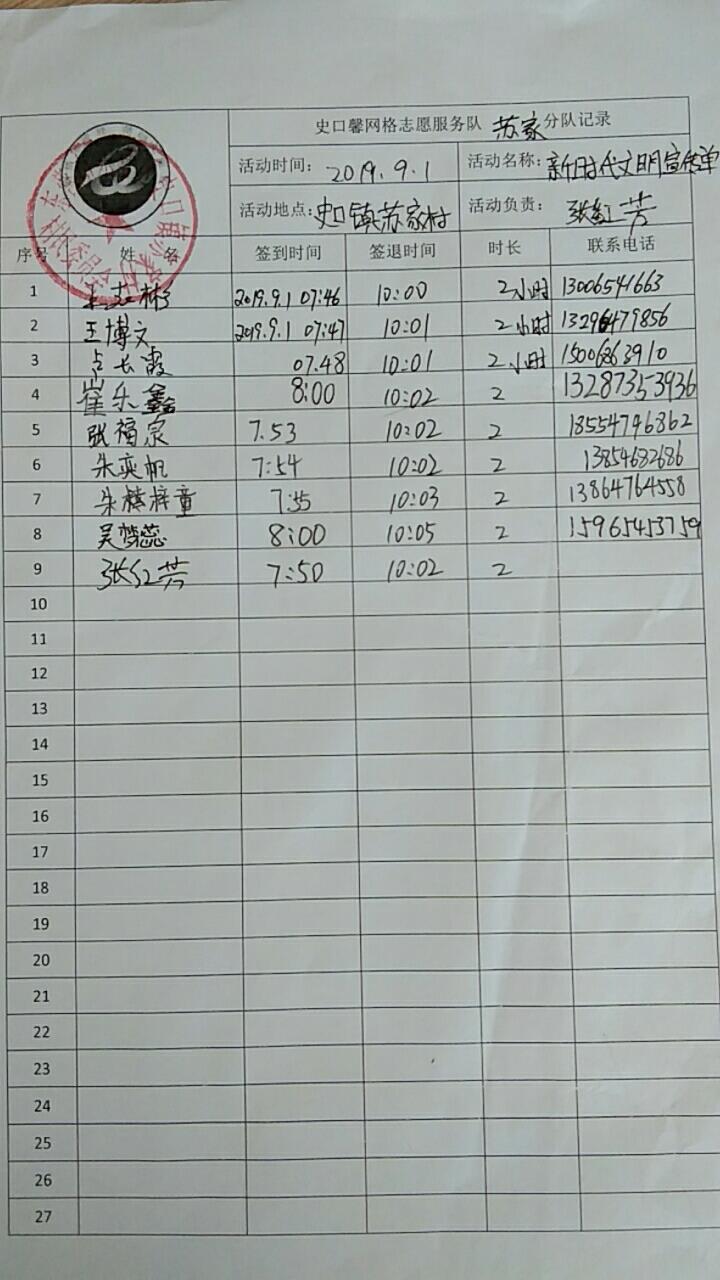 史口馨网格志愿服务队 苏家 分队记录
活动时间： 2019.9.1 活动名称： 新时代文明宣传单
活动地点： 史口镇苏家村 活动负责： 张红芳
序号 姓 名 签到时间 签退时间 时长 联系电话
1 2019.9.1 07:46 10:00 2小时 13006541663
2 王博文 2019.9.1 07:47 10:01 2小时 13296479856
3 卢长霞 07.48 10:01 2小时 15006863910
4 崔乐鑫 8:00 10:02 2 13287353936
5 张福泉 7.53 10:02 2 18554796862
6 朱奕帆 7:54 10:02 2 13854682686
7 朱梓童 7:55 10:03 2 13864764558
8 吴梦蕊 8:00 10:05 2 15965453759
9 张红芳 7:50 10:02 2
10
11
12
13
14
15
16
17
18
19
20
21
22
23
24
25
26
27